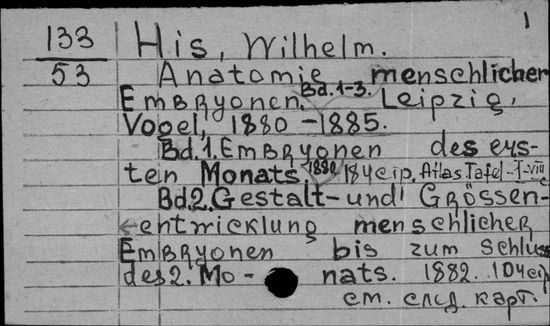 1
133
53
His, Wilhelm.
Anatomie menschlicher
Embryonen. Bd.1-3. Leipzig,
Vogel, 1880-1885.
Bd.1. Embryonen des ers-
ten Monats 1880 184 c. ip. Atlas Tafel-I-VIII
Bd2. Gestalt-und Grössen-
entwicklung menschlicher
Embryonen bis zum Schluss
des 2. Mo-nats. 1882. 104 c.
см. след. карт.